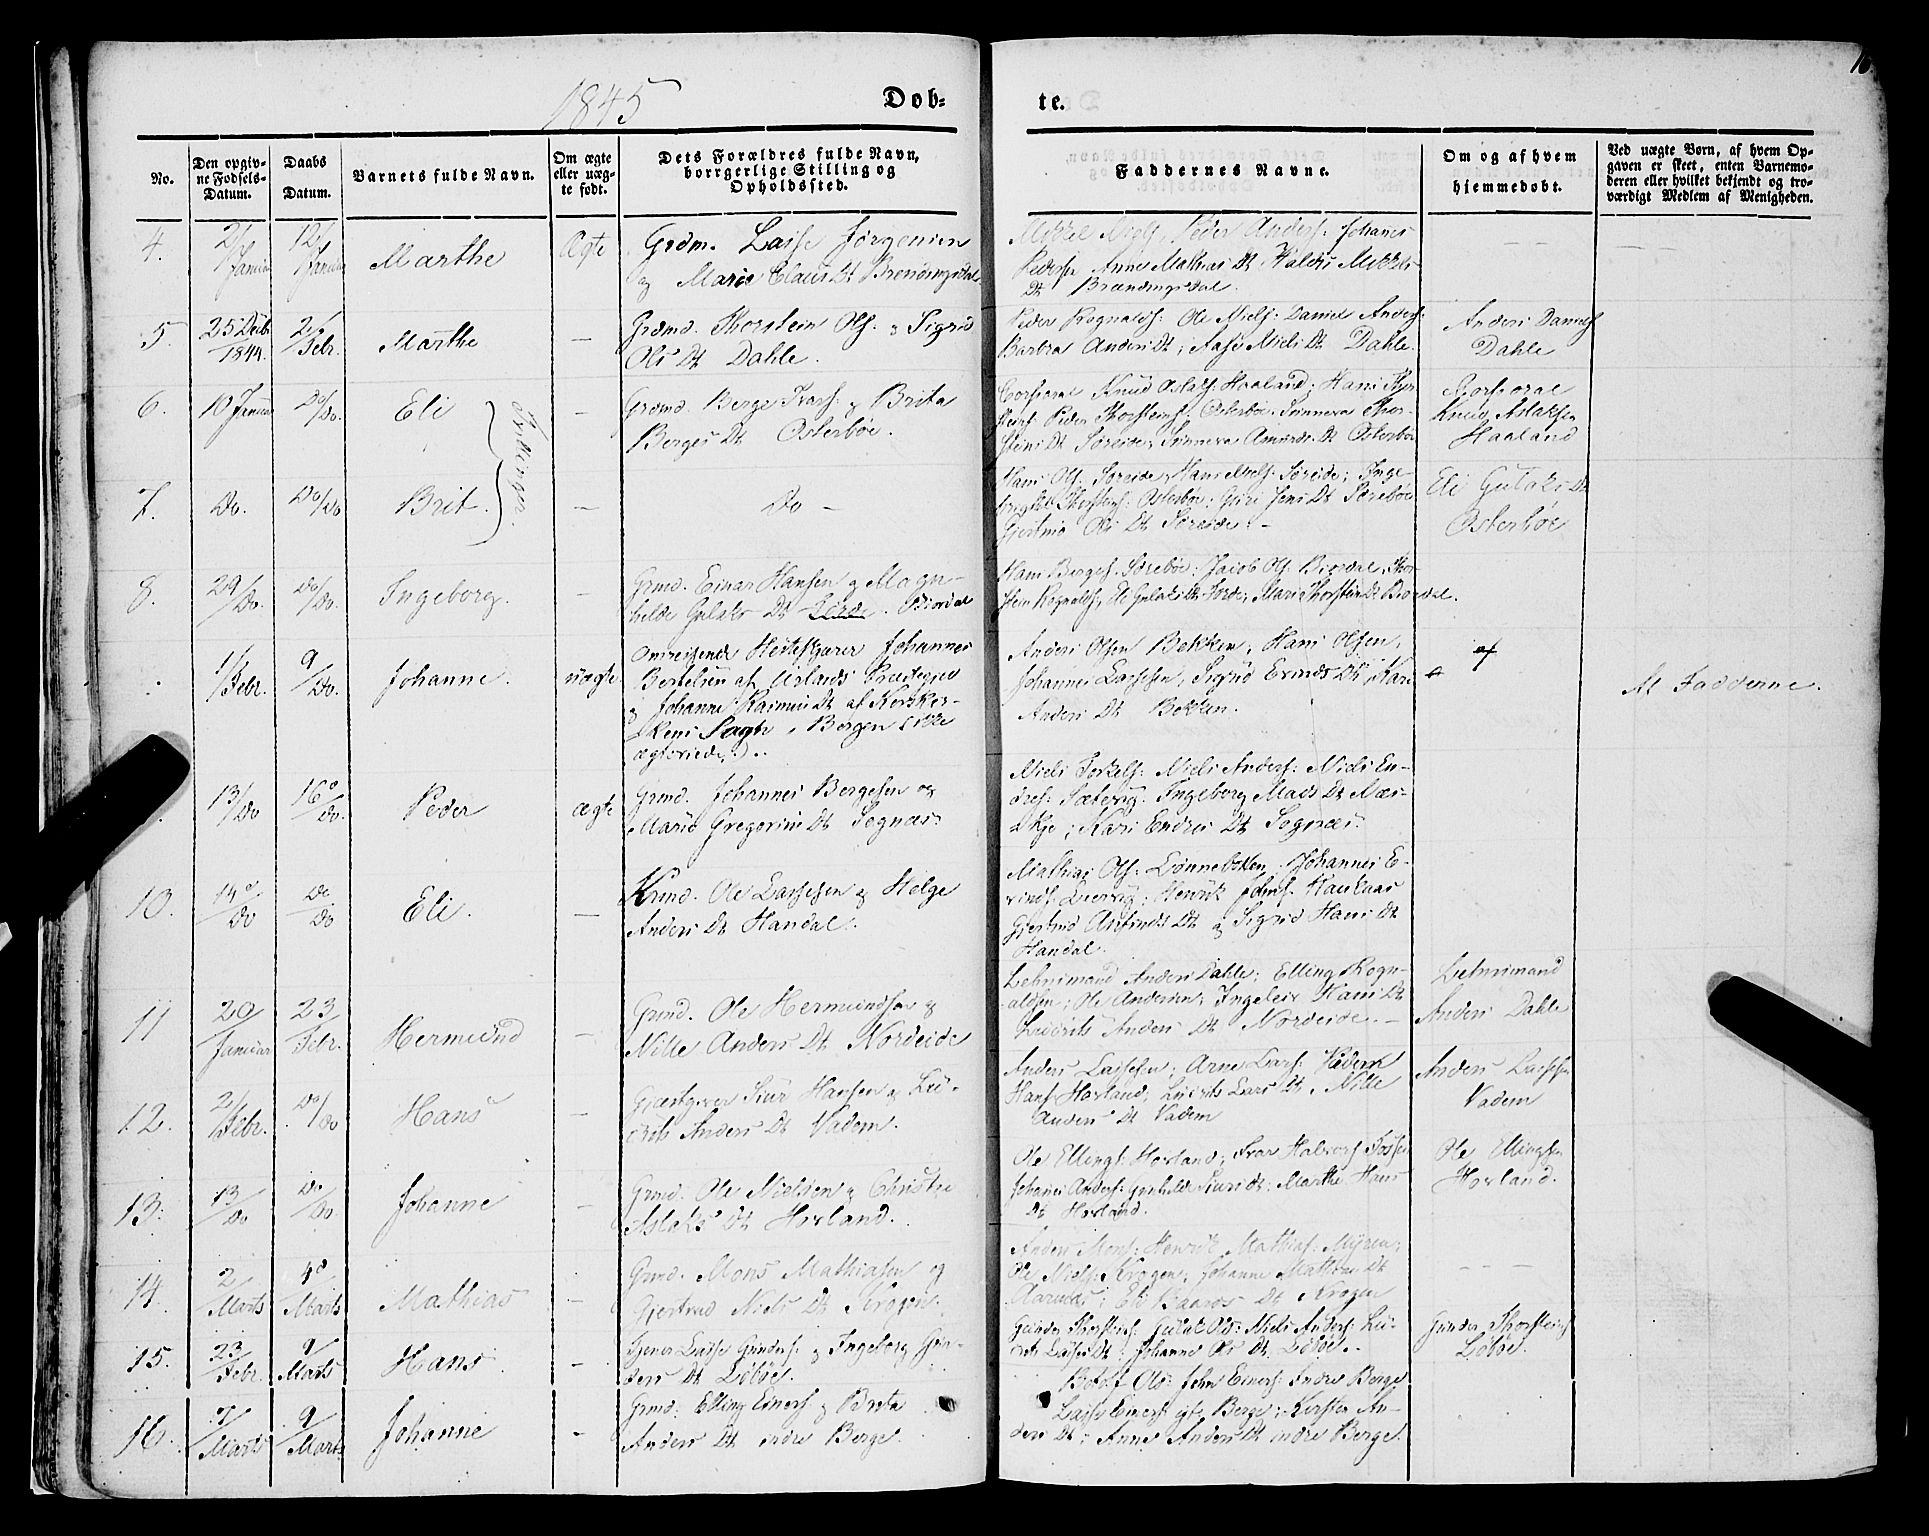 1845
Døb-
te.
16
No.
Den opgiv-
ne Fødsels-
Datum.
Daabs
Datum.
Barnets fulde Navn.
Om ægte
eller uæg-
te født.
Dets Forældres fulde Navn,
borrgerlige Stilling og
Opholdssted.
Faddernes Navne.
Om og af hvem
hjemmedøbt.
Ved uægte Børn, af hvem Op-
gaven er skeet, enten Barnemo-
deren eller hvilket bekjendt og tro-
værdigt Medlem af Menigheden.
4.
2/ Januar
12/ Januar
Marthe
Ægte
Grdm. Lasse Jørgensen
og Marie Claus Dt Brendingsdal
Mikkel Niels. Peder Anders: Johannes
Pedersen Anne Mathias Dt.
Dt Brændingsdal.
5.
25 Decb. 1844.
2/ Febr.
Marthe
—
Grdmd. Thorstein Ols: & Sigrid
Ols Dt Dahle.
Peder Rognalds: Ole Niels: Daniel Anders:
Barbra Anders Dt; Aase Niels Dt Dahle.
Anders Daniels
Dahle
6.
10 Januar
Do/Do.
Eli
Tvillinger.
—
Grdmd. Berge Ivars: & Brita
Berges Dt Østerbøe.
Corporal Knud Aslaks: Haaland; Hans
Peder Thorsteins: Østerbøe; Sinneva Thor-
steins Dt Søreide; Sinneva Amunds Dt Østerbøe
Corporal
Knud Aslaksen
Haaland
7.
Do.
Do/Do
Brit.
—
Do —
Hans Ols: Søreide; Hans Niels: Søreide;
Thorsteins: Østerbøe; Guri Jens Dt Sørebøe
Ols Dt Søreide. -
Eli Gulaks Dt
Østerbøe
8.
29/ Do.
Do/ Do.
Ingeborg.
—
Grmd. Einar Hansen & Magn-
hilde Gulaks Dt Biordal
Hans Berges. Sørebøe; Jacob Ols: Biordal; Thor-
stein Rognalds; Eli Gulaks Dt Førde; Mari Thorstein Dt Biordal.
1/ Febr.
9/ Do.
Johanne.
uægte
Omreisende Johannes
Bertelsen af Urlands Præstegjeld
& Johanne Rasmus Dt af Korskir-
kens Sogn i Bergen (ikke
ægteviede.) ..
Anders Olsen Bekken; Hans Olsen,
Johannes Lassesen, Sigrid Erinds Dt; Kari
Anders Dt Bekken.
Af Fadderne.
13/ Do
16d/ Do.
Peder
Ægte
Grmd. Johannes Bergesen og
Mari Gregorius Dt Sognæs.
Niels Torkels: Niels Anders: Niels En-
dres: Sætevig. Ingeborg Mads Dt Næs-
Kari Endres Dt Sognæs.
10.
14d/ Do
Do/ Do
Eli.
—
Krmd. Ole Lassesen & Helge
Anders Dt Handal.
Mathias Ols: Lønnebotten; Johannes E-
rinds: Henrik Johns: Haukaas
Gjertrud Dt & Sigrid Hans Dt
Handal.
11
20/ Januar
23/ Febr.
Hermund
—
Grmd. Ole Hermundsen &
Nille Anders Dt Nordeide
Lehnsmand Anders Dahle; Elling Rogn-
aldsen; Ole Andersen; Ingeleiv Hans Dt
Anders Dt Nordeide. —
Lehnsmand
Anders Dahle
12.
2/ Febr.
Do/ Do
Hans
—
Gjæstgiver Siur Hansen & Lu-
Anders Dt Vadem.
Anders Lassesen; Arne Lars: Vadem
Hans Horland; Lars Dt, Nille
Anders Dt Vadem
Anders Lassesen
Vadem
13.
13/ Do
Do/ Do.
Johanne
—
Grmd. Ole Nielsen & Christie
Aslaks Dt Horland.
Ole Ellings: Horland; Ivar Halvors:
Johannes Anders: Gunhilde Siurs Dt: Marthe Hans
Dt Horland.
Ole Ellingsen
Horland.
14.
2/ Marts
4d/ Marts
Mathias
—
Grmd. Mons Mathiasen og
Gjertrud Niels Dt Krogen.
Anders Mons: Henrik Mathias: Myren;
Ole Niels: Krogen; Johanne Mathias Dt
Eli Dt Krogen
15.
23/ Febr.
9/ Marts
Hans
—
Lasse Gunders: & Ingeborg Gun-
ders Dt Løbøe.
Gunder Thorsteins: Gulak Ols: Niels Anders: Lu-
Lasses Dt; Johanne Ols Dt. Løbøe. -
Gunder Thorsteins
Løbøe.
16.
7/ Marts
9/ Marts
Johanne
—
Grmd. Elling Einers: & Brita
Anders Dt indre Berge
Botolf Ols: John Einers: Indre Berge
Lasse Einers: ytre Berge; Kirsten An-
ders Dt; Anne Anders Dt indre Berge.